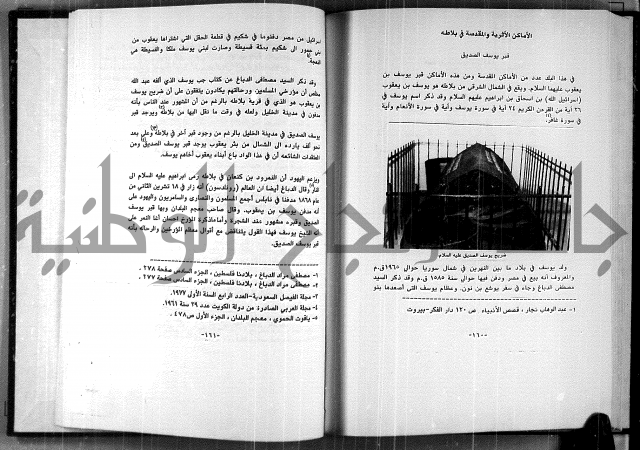 الأماكن الأثرية والمقدسة في بلاطه
قبر يوسف الصديق
في هذا البلد عدد من الأماكن القدسة ومن هذه الأماكن قبر يوسف بن
يعقوب عليهما السلام. ويقع في الشمال الشرقي من بلاطه هو يوسف بن يعقوب
(اسرائيل الله) بن اسحاق بن ابراهيم عليهم السلام وقد ذكر اسم يوسف في
٢٦ آية من القرآن الكريم ٢٤ آية في سورة يوسف وآية في سورة الأنعام وآية
في سورة غافر.
ضريح يوسف الصديق عليه السلام.
وقد يوسف في بلاد ما بين النهرين في شمال سوريا حوالي ١٩٦٥ق.م
والمعروف أنه بيع في مصر ودفن فيها حوالي سنة ١٥٨٥ ق.م وقد ذكر السيد
مصطفى الدباغ وجاء في سفر يوشع بن نون. وعظام يوسف التي أصعدها بنو
١- عبد الوهاب نجار، قصص الأنبياء ص ١٢٠ دار الفكر-بيروت
-١٦٠-
اسرائيل من مصر دفنوما في شكيم في قطعة الحقل التي اشتراها يعقوب من
بني حمور ابي شكيم بمئة قسيطة وصارت لبني يوسف ملكا والقسيطة هي
النعجة.
وقد ذكر السيد مصطفى الدباغ عن كتاب جب يوسف الذي ألفه عبد الله
مخلص أن مؤرخي المسلمين ورحالتهم يكادون يتفقون على أن ضريح يوسف
بن يعقوب هو الذي في قرية بلاطة بالرغم من أن المشهور عند الناس بأنه
مدفون في مدينة الخليل ولعله في وقت ما نقل اليها من بلاطه ويوجد قبر
يوسف الصديق في مدينة الخليل بالرغم من وجود قبر آخر في بلاطه وعلى بعد
نحو ألف يارده الى الشمال من بئر يعقوب يوجد قبر يوسف الصديق ومن
المعتقدات الشائعه أن في هذا الواد باع أبناء يعقوب أخاهم يوسف.
ويزعم اليهود أن النمرود بن كنعان في بلاطه رمى ابراهيم عليه السلام الى
النار وقال الدباغ أيضا ان العالم (رونلدسون) أنه زار في ١٨ تشرين الثاني من
١٨٦٨ مدفنا في نابلس أجمع المسلمون والنصارى والسامريون واليهود على
أنه مدفن يوسف بن يعقوب. وقال صاحب معجم البلدان وبها قبر يوسف
الصديق وقبره مشهور عند الشجرة
النبي يوسف فهذا القول يتناقض مع أقوال معظم المؤرخين والرحاله بأنه
قبر يوسف الصديق.
١- مصطفى مراد الدباغ ، بلادنا فلسطين ، الجزء السادس صفحة ٢٧٨ .
٢- مصطفى مراد الدباغ ، بلادنا فلسطين ، الجزء السادس صفحة ٢٧٧ .
٣- مجلة الفيصل السعودية-العدد الرابع السنة الأولى ١٩٧٧.
٤- مجلة العربي الصادرة عن دولة الكويت عدد ٣٩ سنة ١٩٦١.
٥- ياقوت الحموي ، معجم البلدان ، الجزء الأول ص٤٧٨ .
-١٦١-